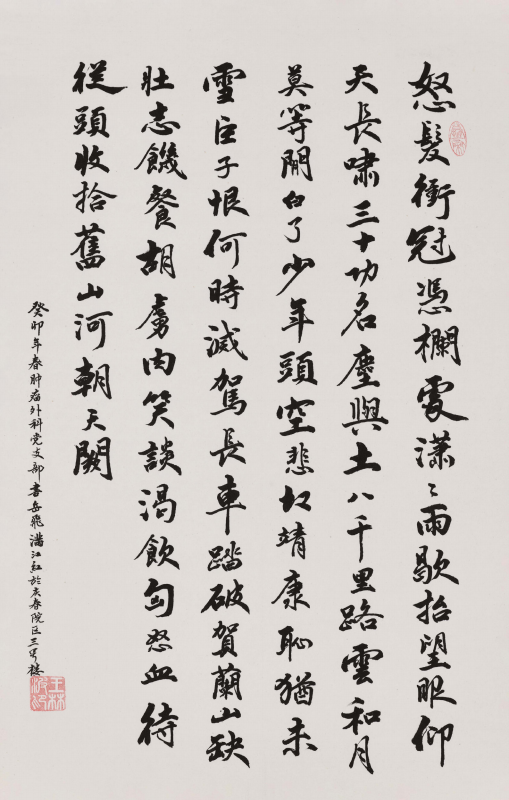 怒髮衝冠憑欄處瀟〻雨歇抬望眼仰
天長嘯三十功名塵與土八千里路雲和月
莫等閒白了少年頭空悲切靖康恥猶未
雪臣子恨何時滅駕長車踏破賀蘭山缺
壯志饑餐胡虜肉笑談渴飲匈奴血待
從頭收拾舊山河朝天闕
癸卯年春肿瘤外科党支部書岳飛滿江紅於春院区三号楼